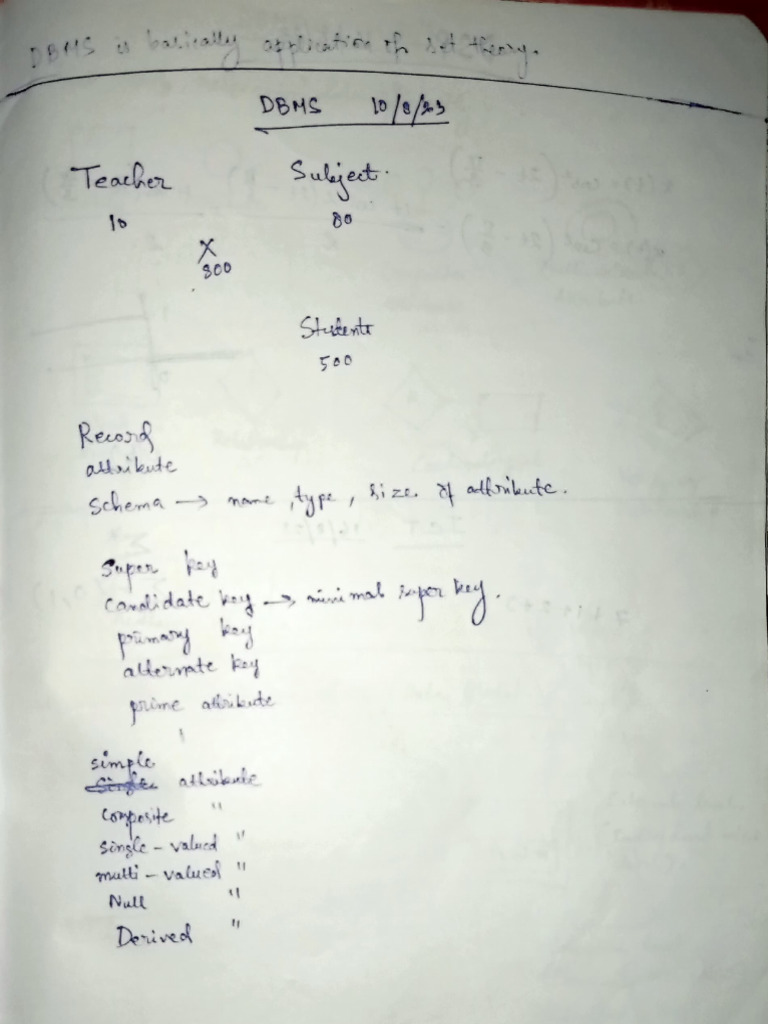 DBMS is basically application of set theory.
DBMS 10/8/23
Teacher Subject.
10 80
X
800
Students
500
Record
attribute
Schema → name, type, size of attribute.
super key
candidate key → minimal super key.
primary key
alternate key
prime attribute
simple
attribute
Composite "
single-valued "
multi-valued "
Null "
Derived "